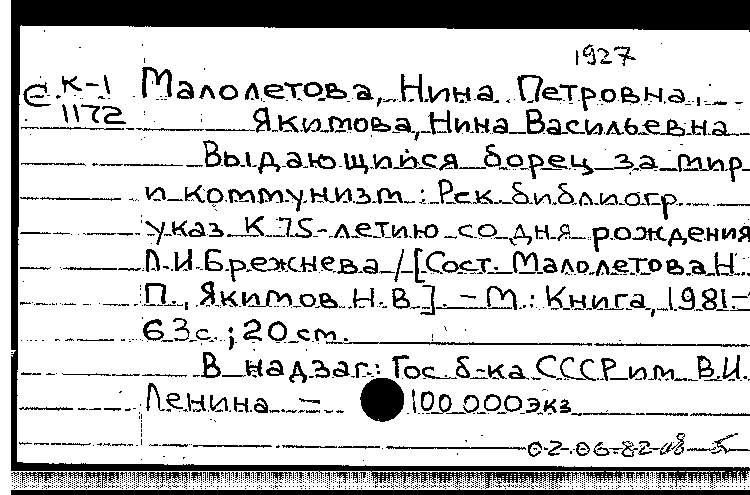 1927
Є К-1 Малолетова, Нина Петровна,
1172
Якимова, Нина Васильевна
Выдающийся борец за мир
и коммунизм : Рек. библиогр.
указ. К 75-летию со дня рождения
Л.И. Брежнева / [Сост. Малолетова Н.
П., Якимов Н.В.]. – М.: Книга, 1981.–
63 с.; 20 см.
В надзаг.: Гос. б-ка СССР им. В.И.
Ленина – 100 000 экз
02.06.82